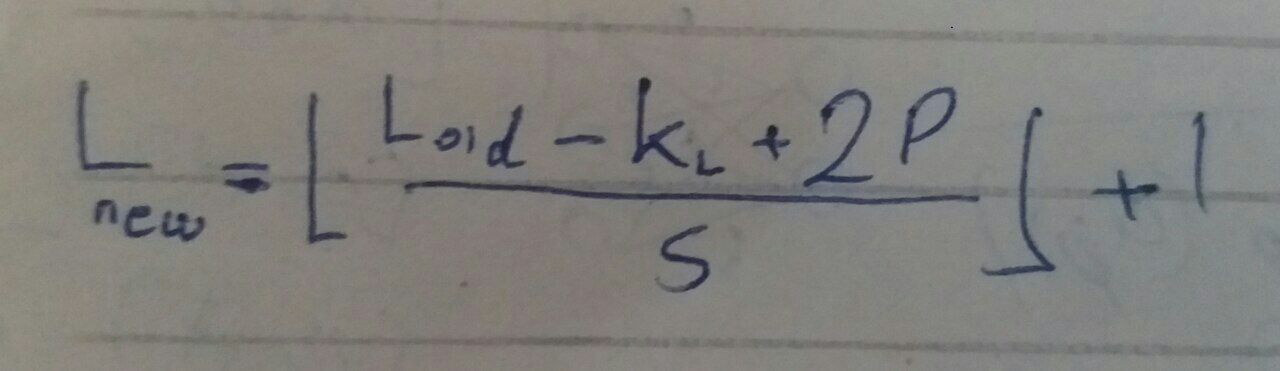 L_new = ⌊ (L_old - k_L + 2P) / S ⌋ + 1